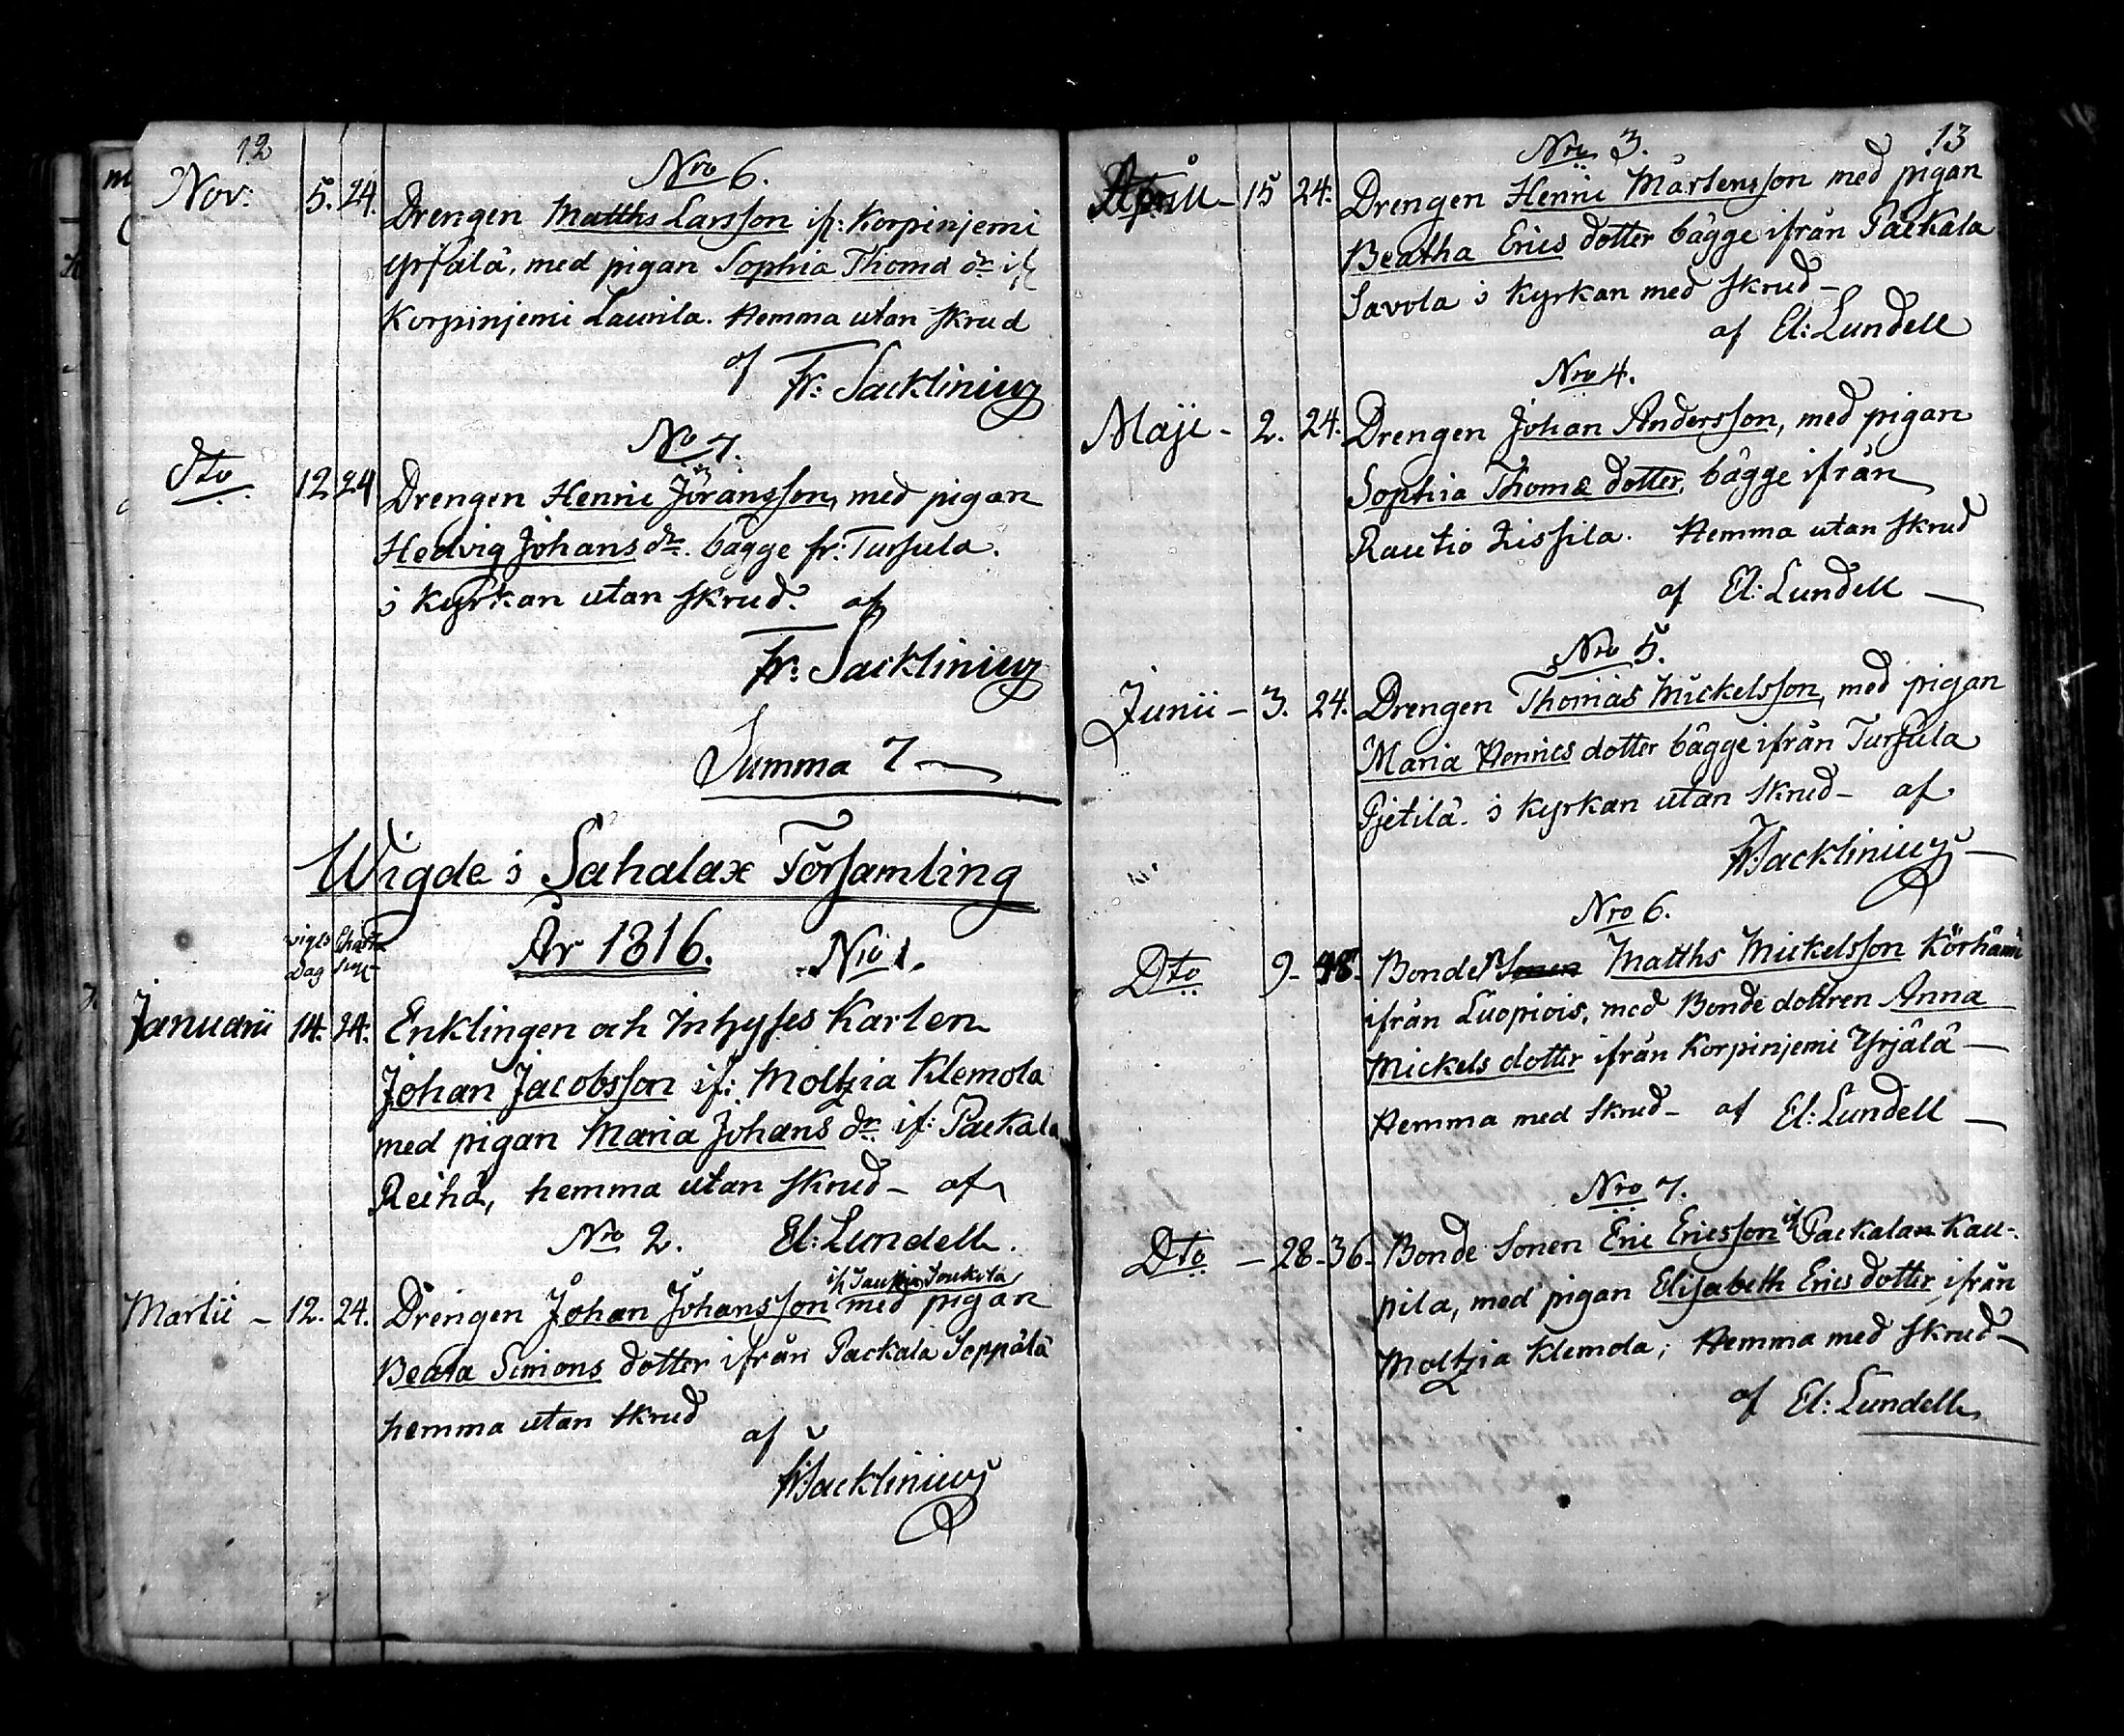 12
Nro 6.
Nov: 5. 24. Drengen Matths Larsson if: Korpinjemi
Yrjälä, med pigan Sophia Thomæ dr if
Korpinjemi Laurila. Hemma utan skrud
af Fr: Sacklinius
No 7.
Dto 12 24 Drengen Henric Jöransson, med pigan
Hedvig Johans dr. bägge fr: Tursula.
i Kyrkan utan skrud. af
Fr: Sacklinius
Summa 7
Wigde i Sahalax Församling
vigs Dag
År 1816. Nro 1.
Januarii 14. 24. Enklingen och Inhyses Karlen
Johan Jacobsson if: Moltzia Klemola
med pigan Maria Johans dr if: Packala
Reihä, hemma utan skrud – af
Nro 2. El: Lundell.
Martii – 12. 24. Drengen Johan Johansson med pigan
Beata Simons dotter ifrån Packala Seppälä
hemma utan skrud
af
Fr: Sacklinius
13
Nro 3.
Aprill – 15 24. Drengen Henric Mårtensson med pigan
Beatha Erics dotter bägge ifrån Packala
Savola i Kyrkan med skrud –
af El: Lundell
Nro 4.
Maji – 2. 24. Drengen Johan Andersson, med pigan
Sophia Thomæ dotter, bägge ifrån
Rautio Zissila. Hemma utan skrud
af El: Lundell —
Nro 5.
Junii – 3. 24. Drengen Thomas Mickelsson, med pigan
Maria Henrics dotter bägge ifrån Tursula
Pjetilä. i Kyrkan utan skrud – af
Fr: Sacklinius —
Nro 6.
Dto 9 – 48. Bonden Sonen Matths Mickelsson Körhämi
ifrån Luopiois, med Bonde dottren Anna
Mickels dotter ifrån Korpinjemi Yrjälä —
Hemma med skrud – af El: Lundell —
Nro 7.
Dto — 28 – 36 – Bonde Sonen Eric Ericsson if Packala Kau-
pila, med pigan Elisabeth Erics dotter ifrån
Moltzia Klemola; Hemma med skrud –
af El: Lundell